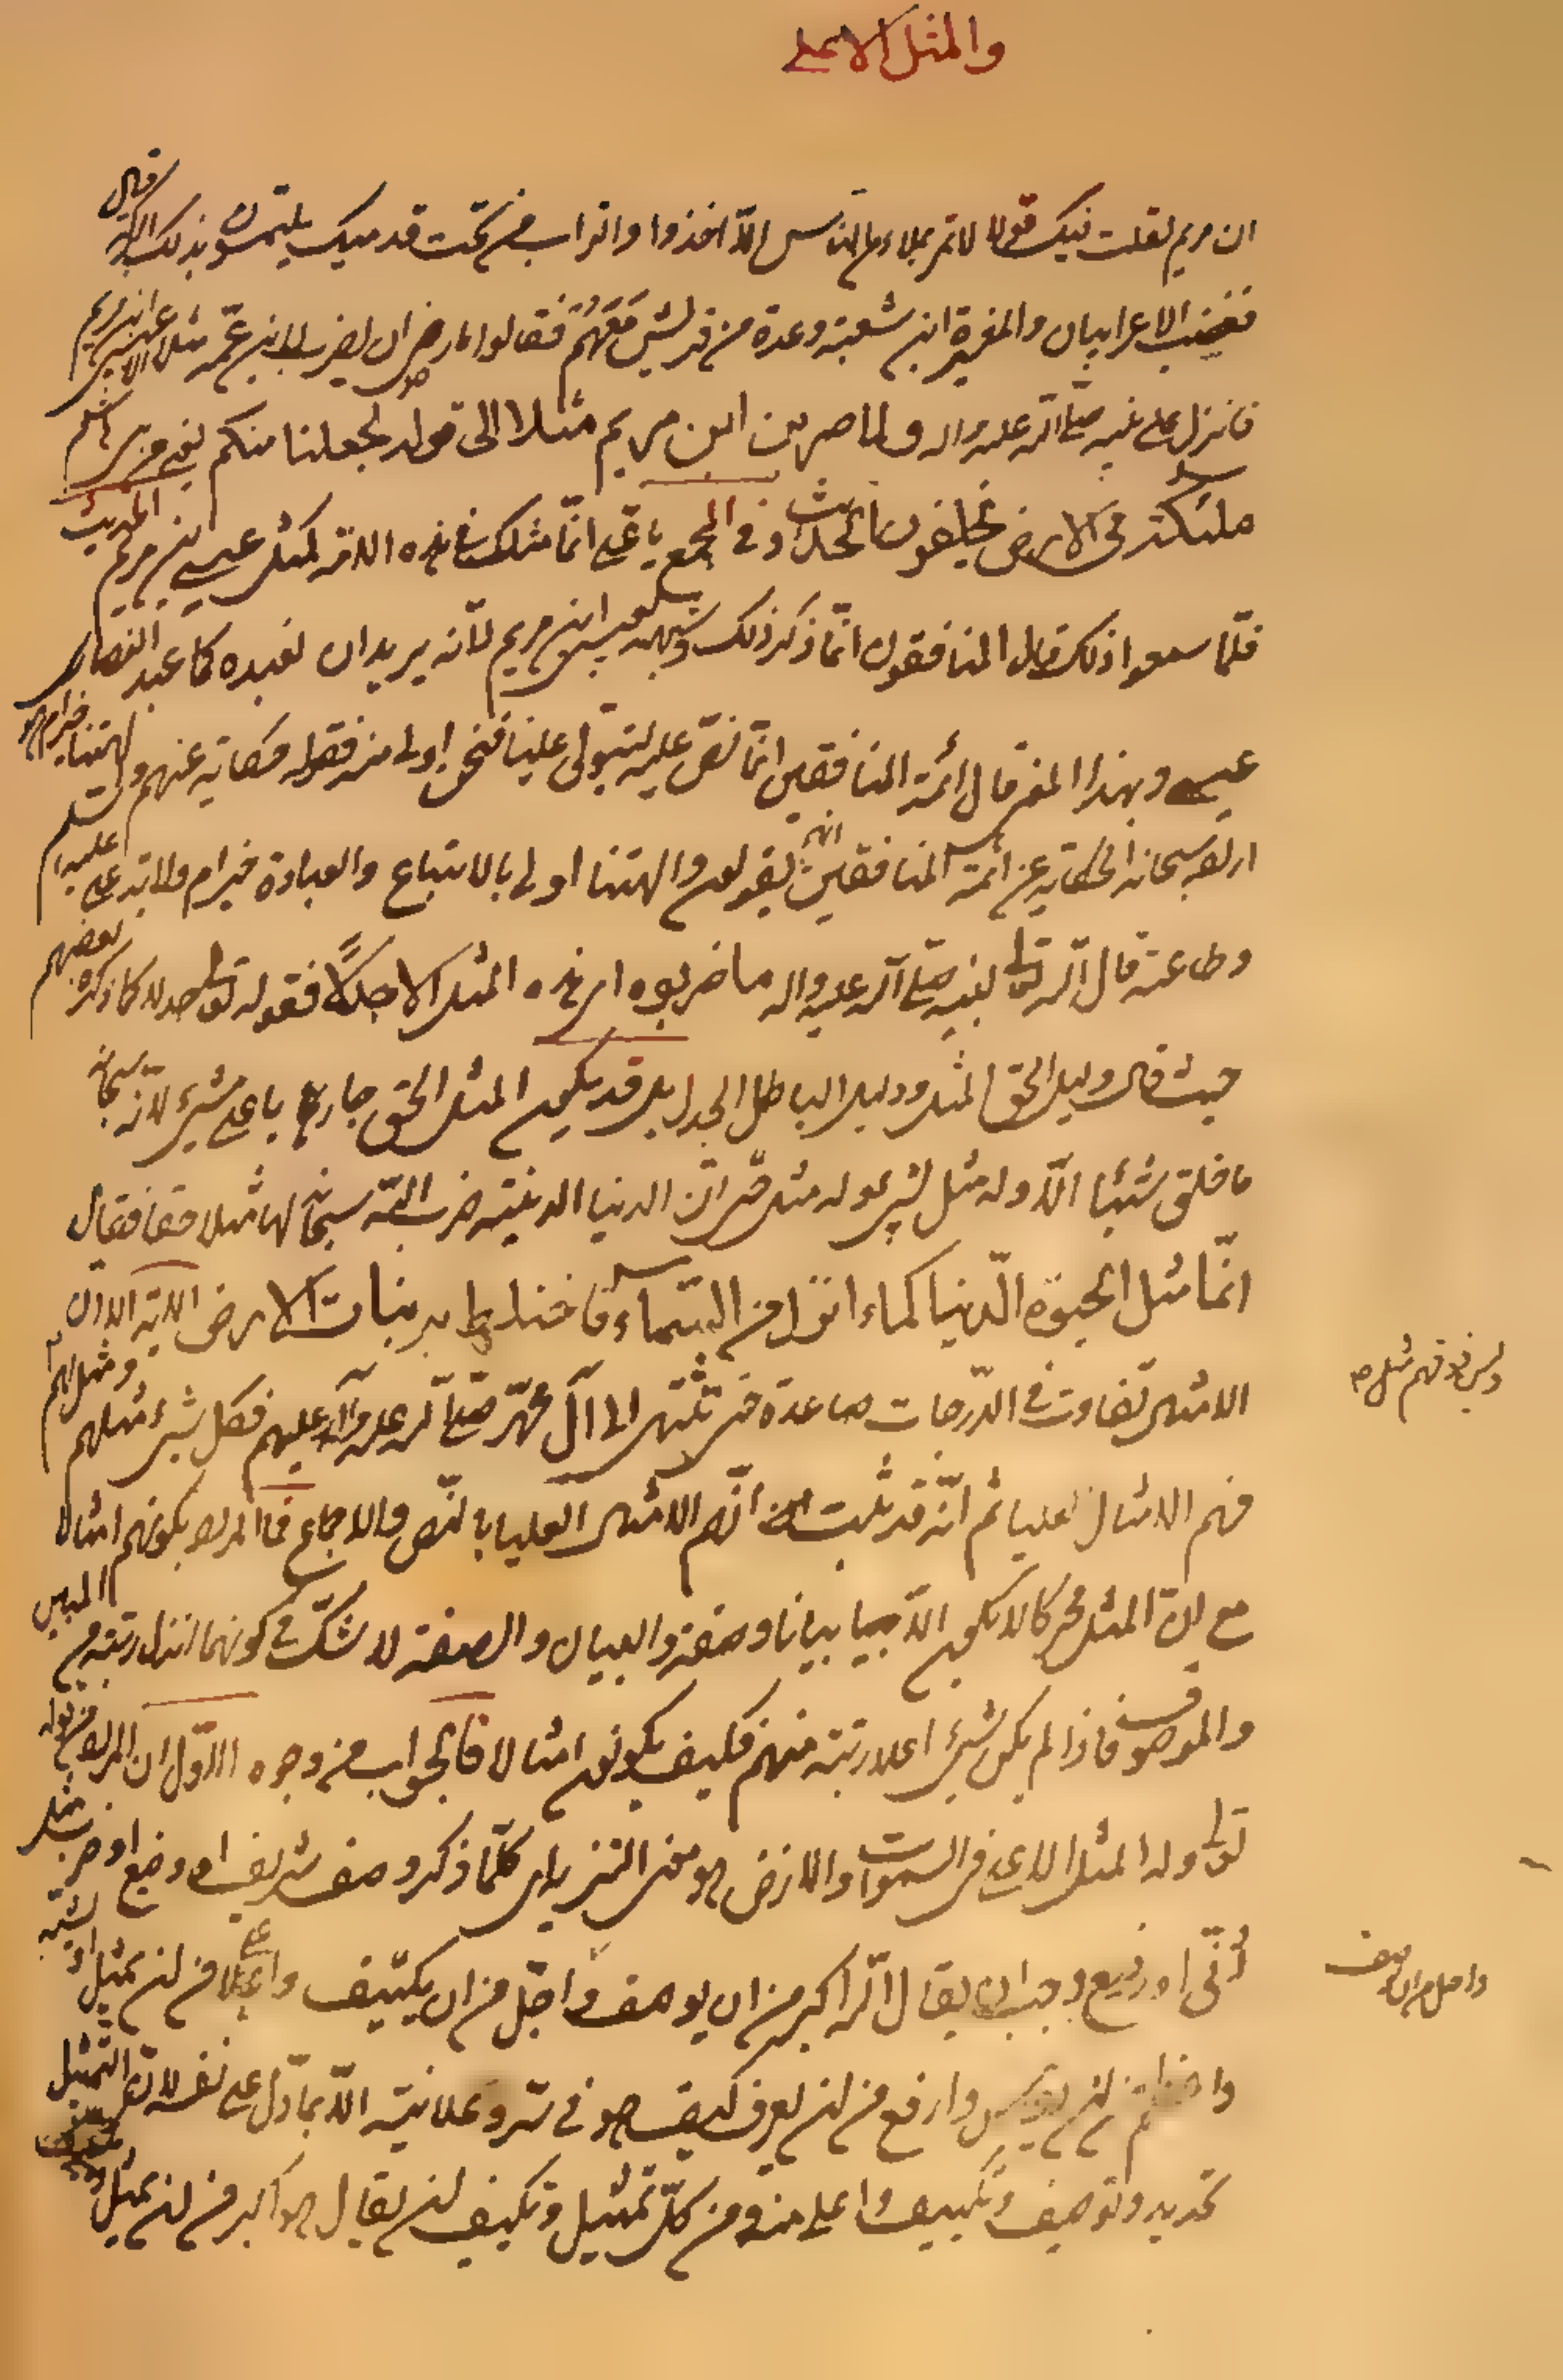 والمثل الاعلى
ان مريم لقلت فيك قولا لا تمر بملاء من الناس الّا اخذوا التراب من تحت قدميك يلتمسون بذلك البركة قال
فغضب الاعرابيان والمغيرة ابن شعبة وعدة من قريش مَعَهُم فقالوا ما رضى ان يضرب لابن عمّه مثلا الا عيسى ابن مريم
فانزل على نبيه صلّى الله عليه واله ولما ضرب ابن مريم مثلا الى قوله لجعلنا منكم يعنى من بنى هاشم
ملئكة فى الارض يخلفون الحديث وفى المجمع يا على انّما مثلك فى هذه الامّة كمثل عيسى ابن مريم الحديث
فلمّا سمعوا ذلك قال المنافقون انّما ذكر ذلك وشبهه بعيسى ابن مريم لأنّه يريد ان نعبده كما عبد النصارى
عيسى وبهذا المعنى قال ائمّة المنافقين انّما نصّ عليه ليتولى علينا فنحن اولى منه فقوله حكاية عنهم وآلهتنا خير ام هو
سبحانه الحكاية عن ائمّة المنافقين انهم يقولون وآلهتنا اولى بالاتباع والعبادة خير ام ولاية على عليه السلم
وطاعته قال الله تعالى لنبيه صلّى الله عليه واله ما ضربوه اى هذه المثل الا جدلاً فقوله تعالى جدلا كما ذكره بعضهم
حيث قال دليل الحق المثل ودليل الباطل الجدل بل قد يكون المثل الحق جاريا على شىء لأنّه سبحانه
ما خلق شيئا الّا وله مثل حتى انّ الدنيا الدنية ضرب اللّه سبحانه لها مثلا حقا فقال
انّما مثل الحيوة الدّنيا كماء انزلناه من السّماء فاختلط به نبات الارض الاية الا ان
الامثال تتفاوت فى الدّرجات صاعدة حتى تنتهى الى آل محمّد صلّى الله عليه وآله وعليهم فكل شىء مثلهم ومثل لهم
وليس فوقهم مثل صح
فهم الامثال العليا ثم انّه قد ثبت انّهم الامثال العليا بالنّص والاجماع فما المراد بكونهم امثالا
مع انّ المثل محركا لا يكون الّا بيانا وصفة والبيان والصفة لا شكّ فى كونهما انزل رتبة من المبين
والموصوف فاذا لم يكن شىء اعلا رتبة منهم فكيف يكونون امثالا فالجواب من وجوه الاوّل ان المراد من قوله
تعالى وله المثل الاعلى فى السموات والارض هو معنى التنزيه اى كلّما ذكر وصف شريف او وضيع او ضرب مثل
دنّى او رفيع وجب ان يقال الله اكبر من ان يوصف واجلّ من ان يكيّف واعلا من ان يمثل او يشبه
واجل من ان يوصف
واعظم من ان يقاس وارفع من ان يعرف كيف هو فى سرّ وعلانية الّا بما دلّ على نفسه
تحديد وتوصيف وتكييف واعلى منه ومن كلّ تمثيل وتكيف ان يقال هو اكبر من ان يمثل